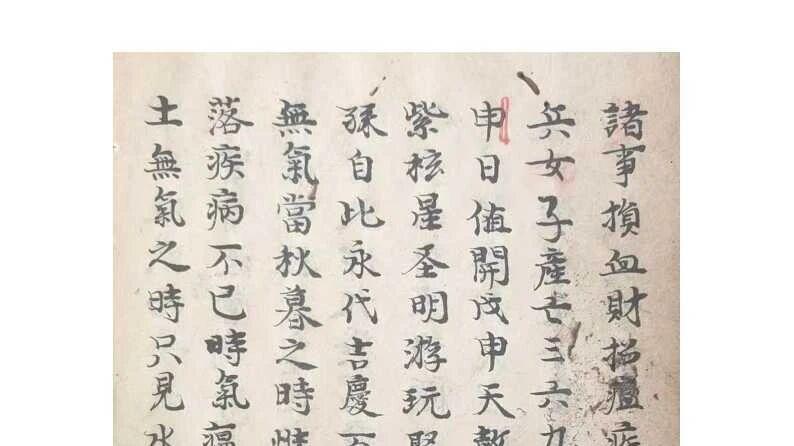 諸事損血財招瘟疾
兵女子產亡三六九
申日值開戊申天
紫核星圣明游玩
孫自此永代吉慶
無氣當秋暮之時
落疾病不已時氣瘟
土無氣之時只見水